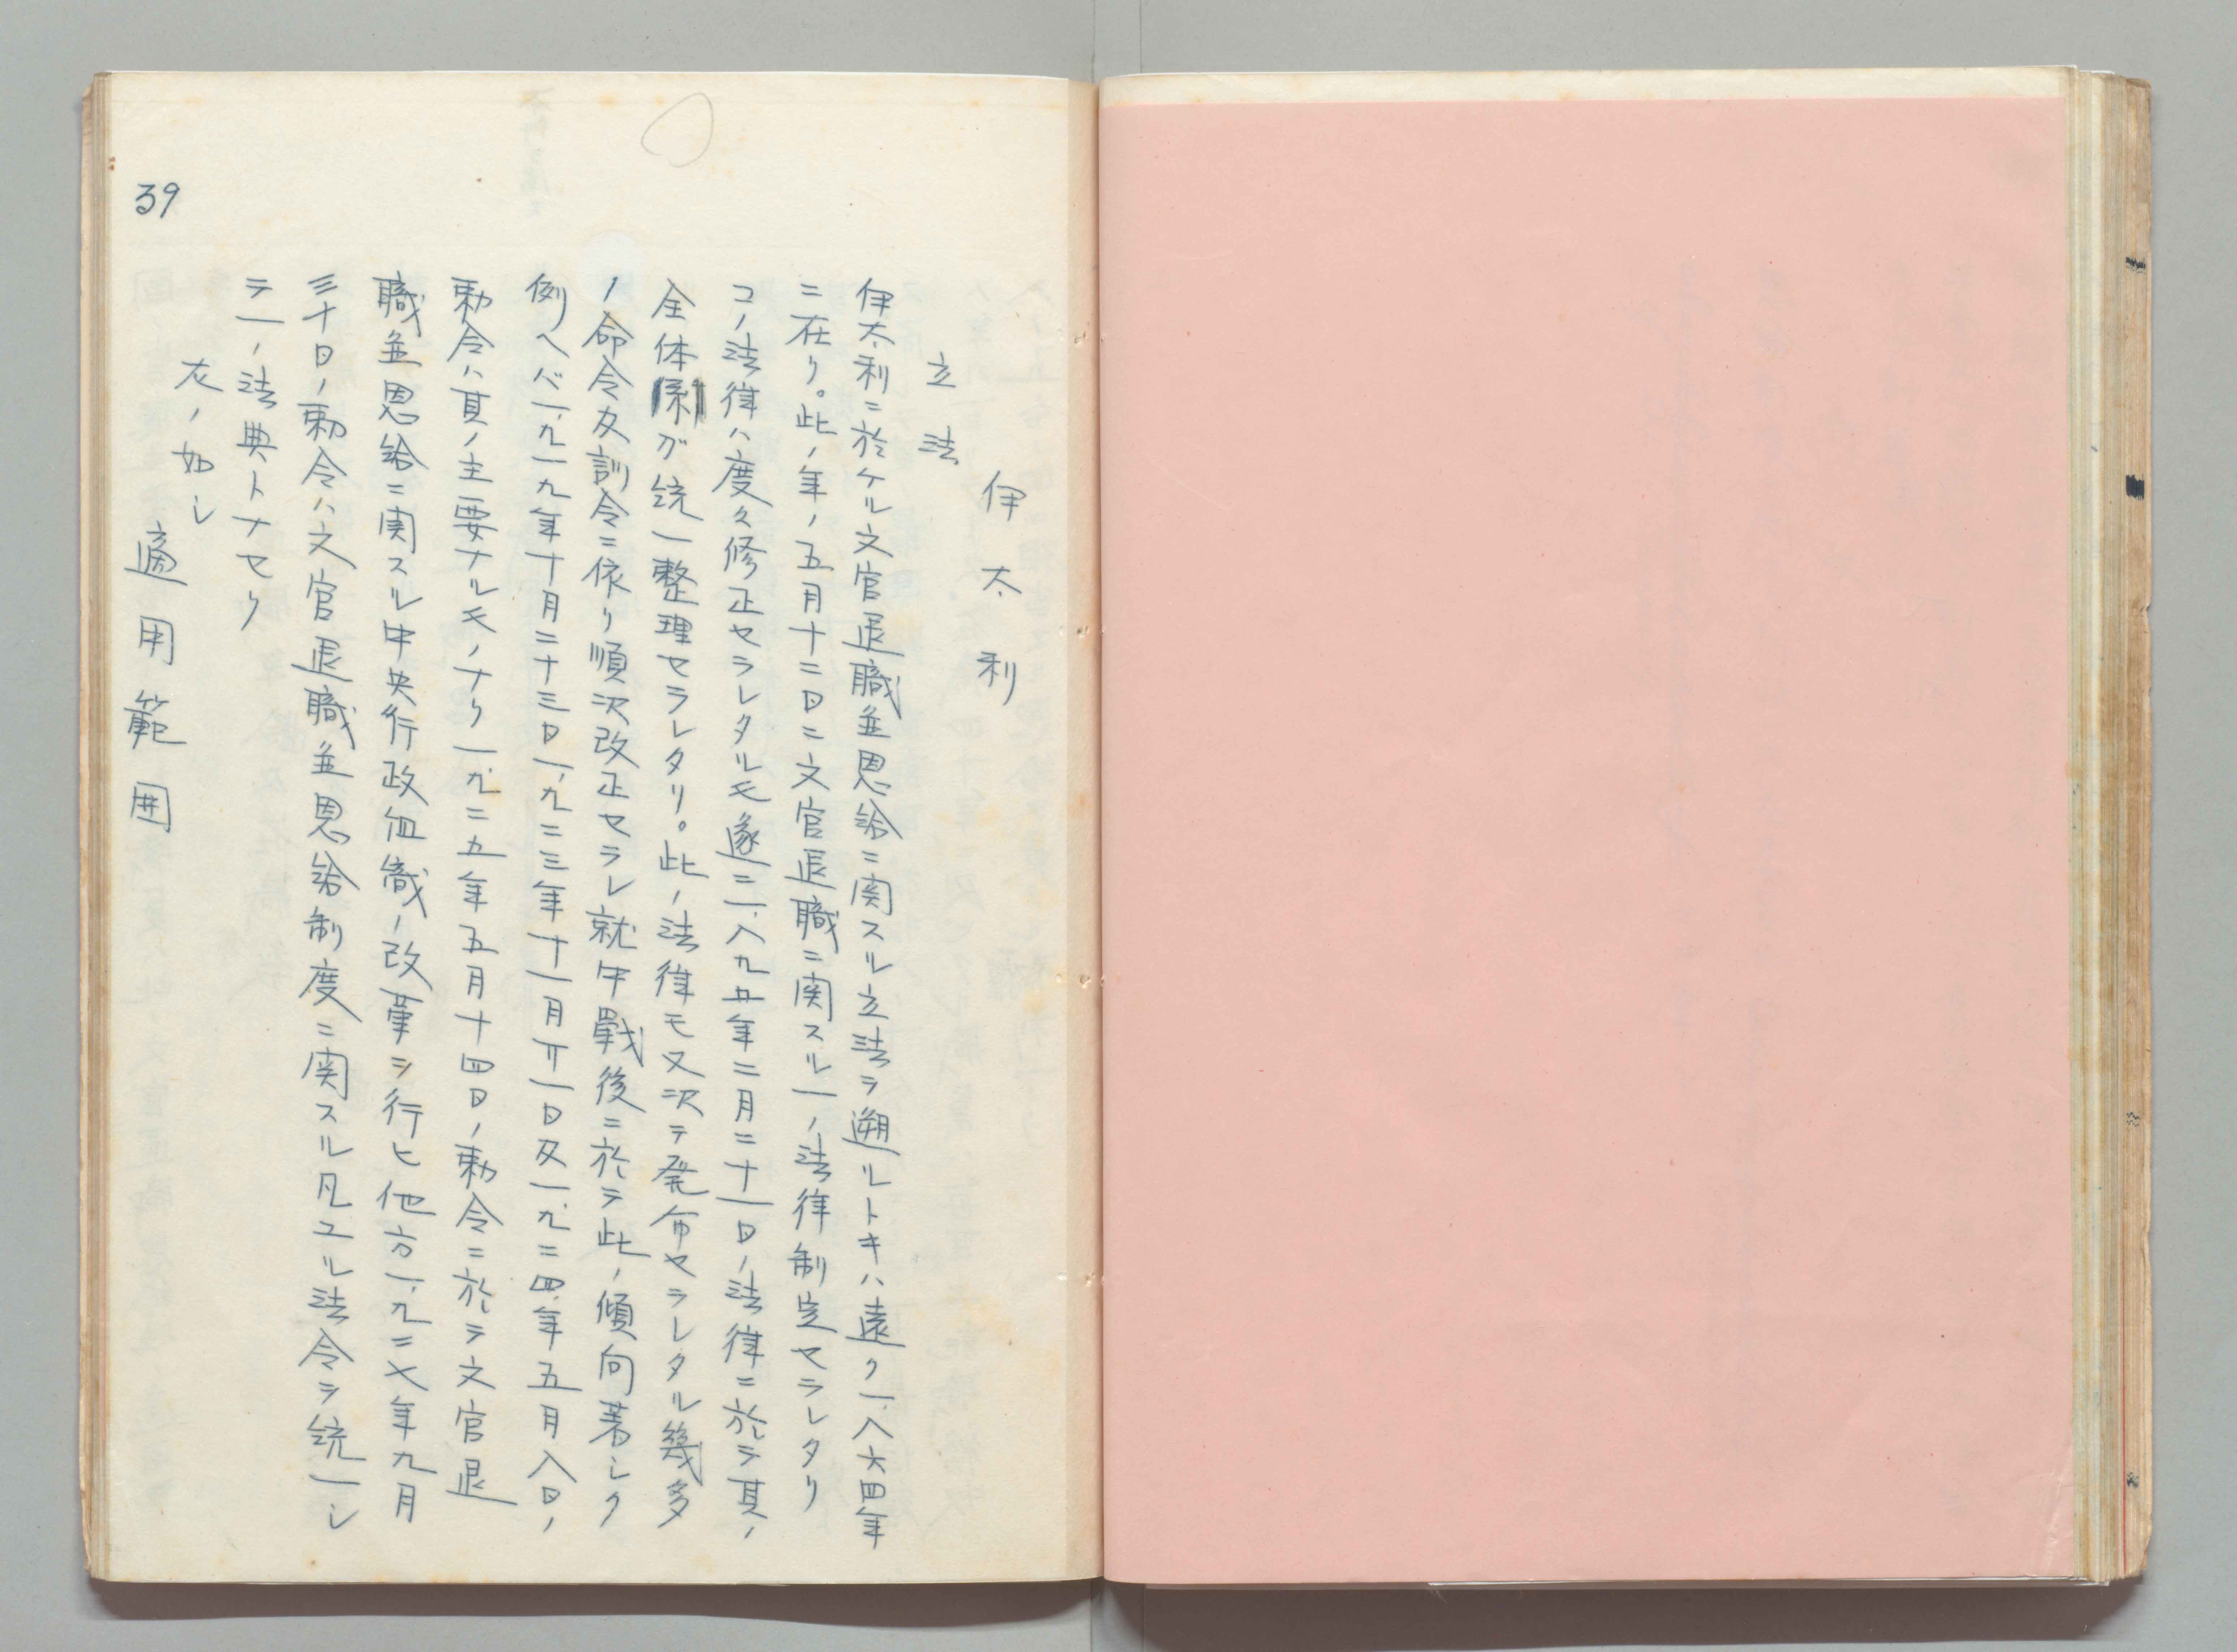 伊太利
立法
伊太利ニ於ケル文官退職並恩給ニ関スル立法ヲ遡ルトキハ遠ク一、八六四年
ニ在リ。此ノ年ノ五月十二日ニ文官退職ニ関スル一ノ法律制定セラレタリ
コノ法律ハ度々修正セラレタルモ遂ニ一、八九五年二月二十一日ノ法律ニ於テ其ノ
全体系ガ統一整理セラレタリ。此ノ法律モ又次テ発布セラレタル幾多
ノ命令及訓令ニ依リ順次改正セラレ就中戰後ニ於テ此ノ傾向著シク
例ヘバ一、九一九年十月二十三日一、九二三年十一月廿一日及一、九二四年五月八日ノ
勅令ハ其ノ主要ナルモノナリ一、九二五年五月十四日ノ勅令ニ於テ文官退
職並恩給ニ関スル中央行政組織ノ改革ヲ行ヒ他方一、九二七年九月
三十日ノ勅令ハ文官退職並恩給制度ニ関スル凡ユル法令ヲ統一シ
テ一ノ法典トナセリ
左ノ如シ
適用範囲
39